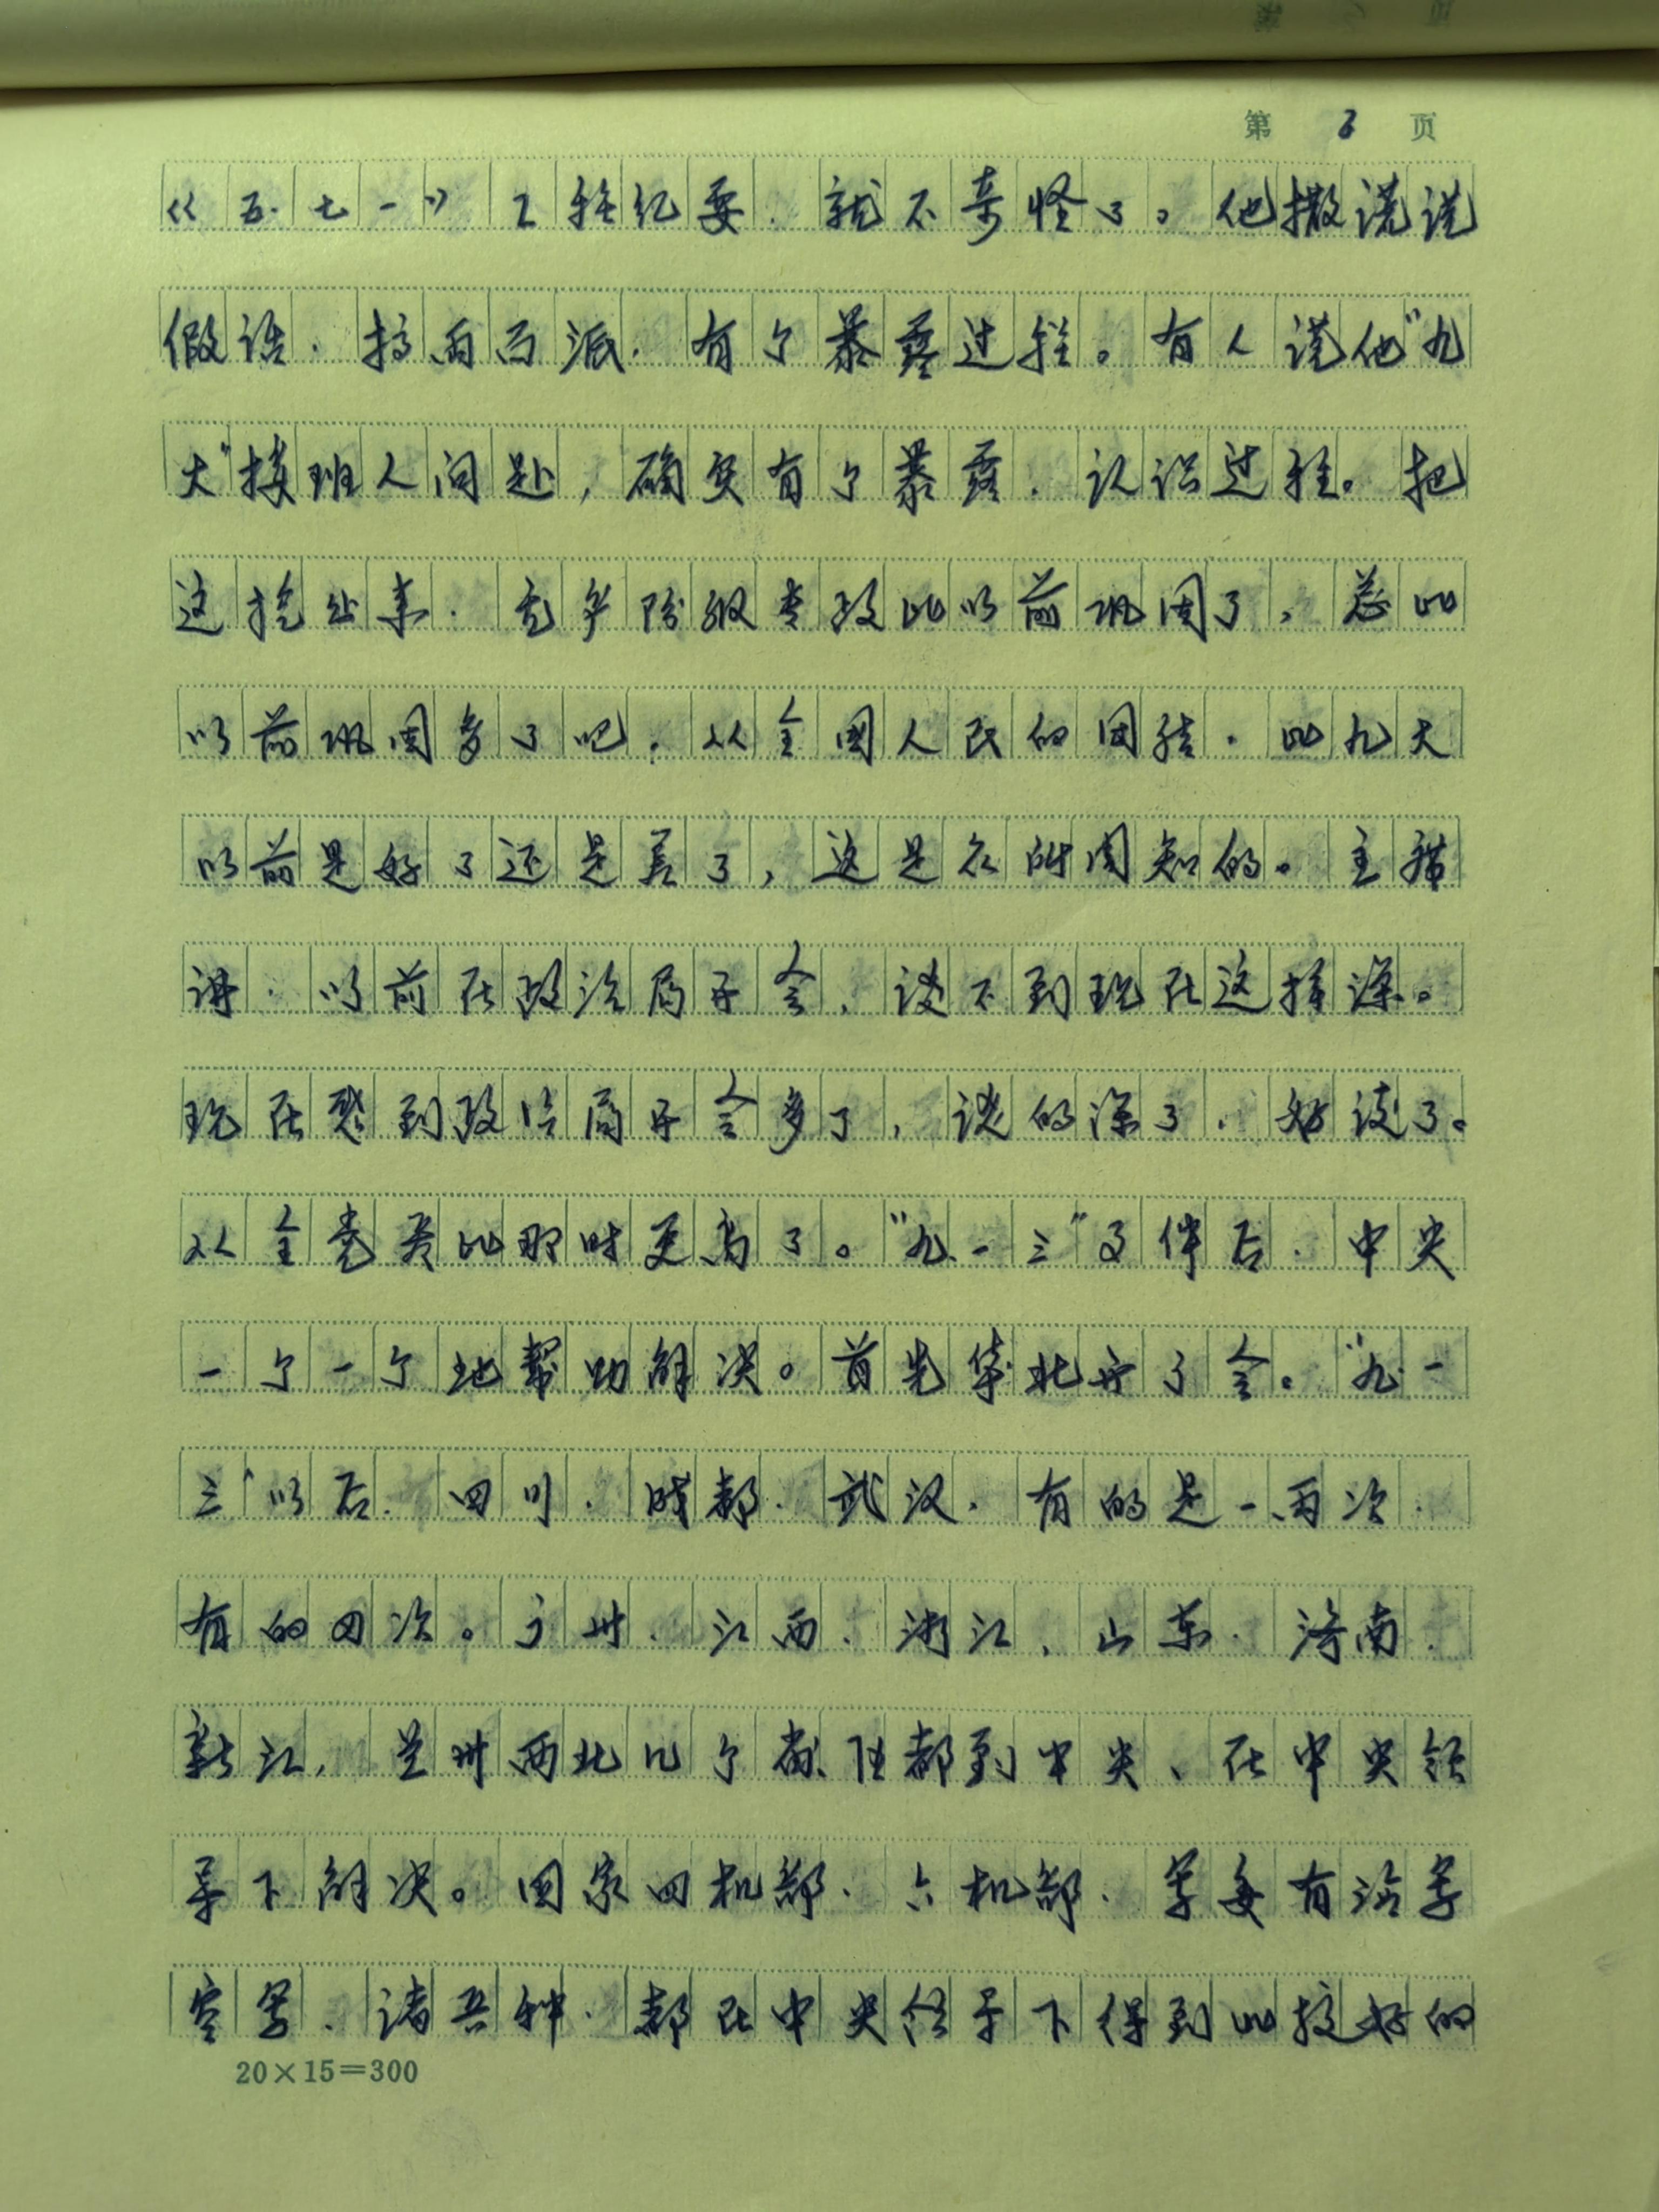 第 6 页
《五·七一》工程纪要，就不奇怪了。他撒谎说
假话，搞两面派，有个暴露过程。有人说他“九
大”接班人问题，确实有个暴露，认识过程。把
这挖出来，无产阶级专政比以前巩固了，总比
以前巩固多了吧，从全国人民的团结，比九大
以前是好了还是差了，这是众所周知的。主席
讲，以前在政治局开会，谈不到现在这样深。
现在感到政治局开会多了，谈的深了，好谈了。
从全党 比那时更高了。“九一三”文件后，中央
一个一个地帮助解决。首先华北开了会。“九一
三”以后，四川、成都、武汉，有的是一、两次，
有的四次。广州、江西、浙江、山东、济南、
新江，兰州西北几个省 都到中央、在中央领
导下解决。国家四机部、六机部、军委有海军
空军、诸兵种，都在中央领导下得到比较好的
20×15=300